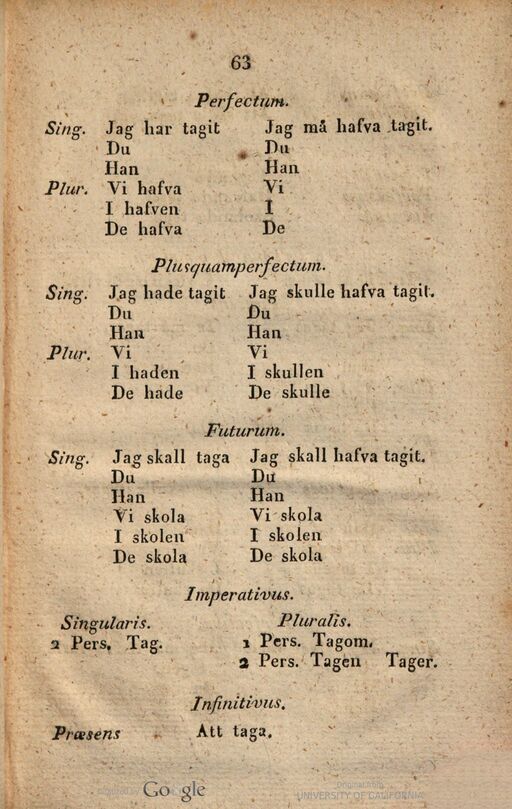 63
Perfectum.
Sing. Jag har tagit Jag må hafva tagit.
Du Du
Han Han
Plur. Vi hafva Vi
I hafven I
De hafva De
Plusquamperfectum.
Sing. Jag hade tagit Jag skulle hafva tagit.
Du Du
Han Han
Plur. Vi Vi
I haden I skullen
De hade De skulle
Futurum.
Sing. Jag skall taga Jag skall hafva tagit.
Du Du
Han Han
Vi skola Vi skola
I skolen I skolen
De skola De skola
Imperativus.
Singularis. Pluralis.
2 Pers. Tag. 1 Pers. Tagom.
2 Pers. Tagen Tager.
Infinitivus.
Præsens Att taga.
Digitized by Google Original from
UNIVERSITY OF CALIFORNIA